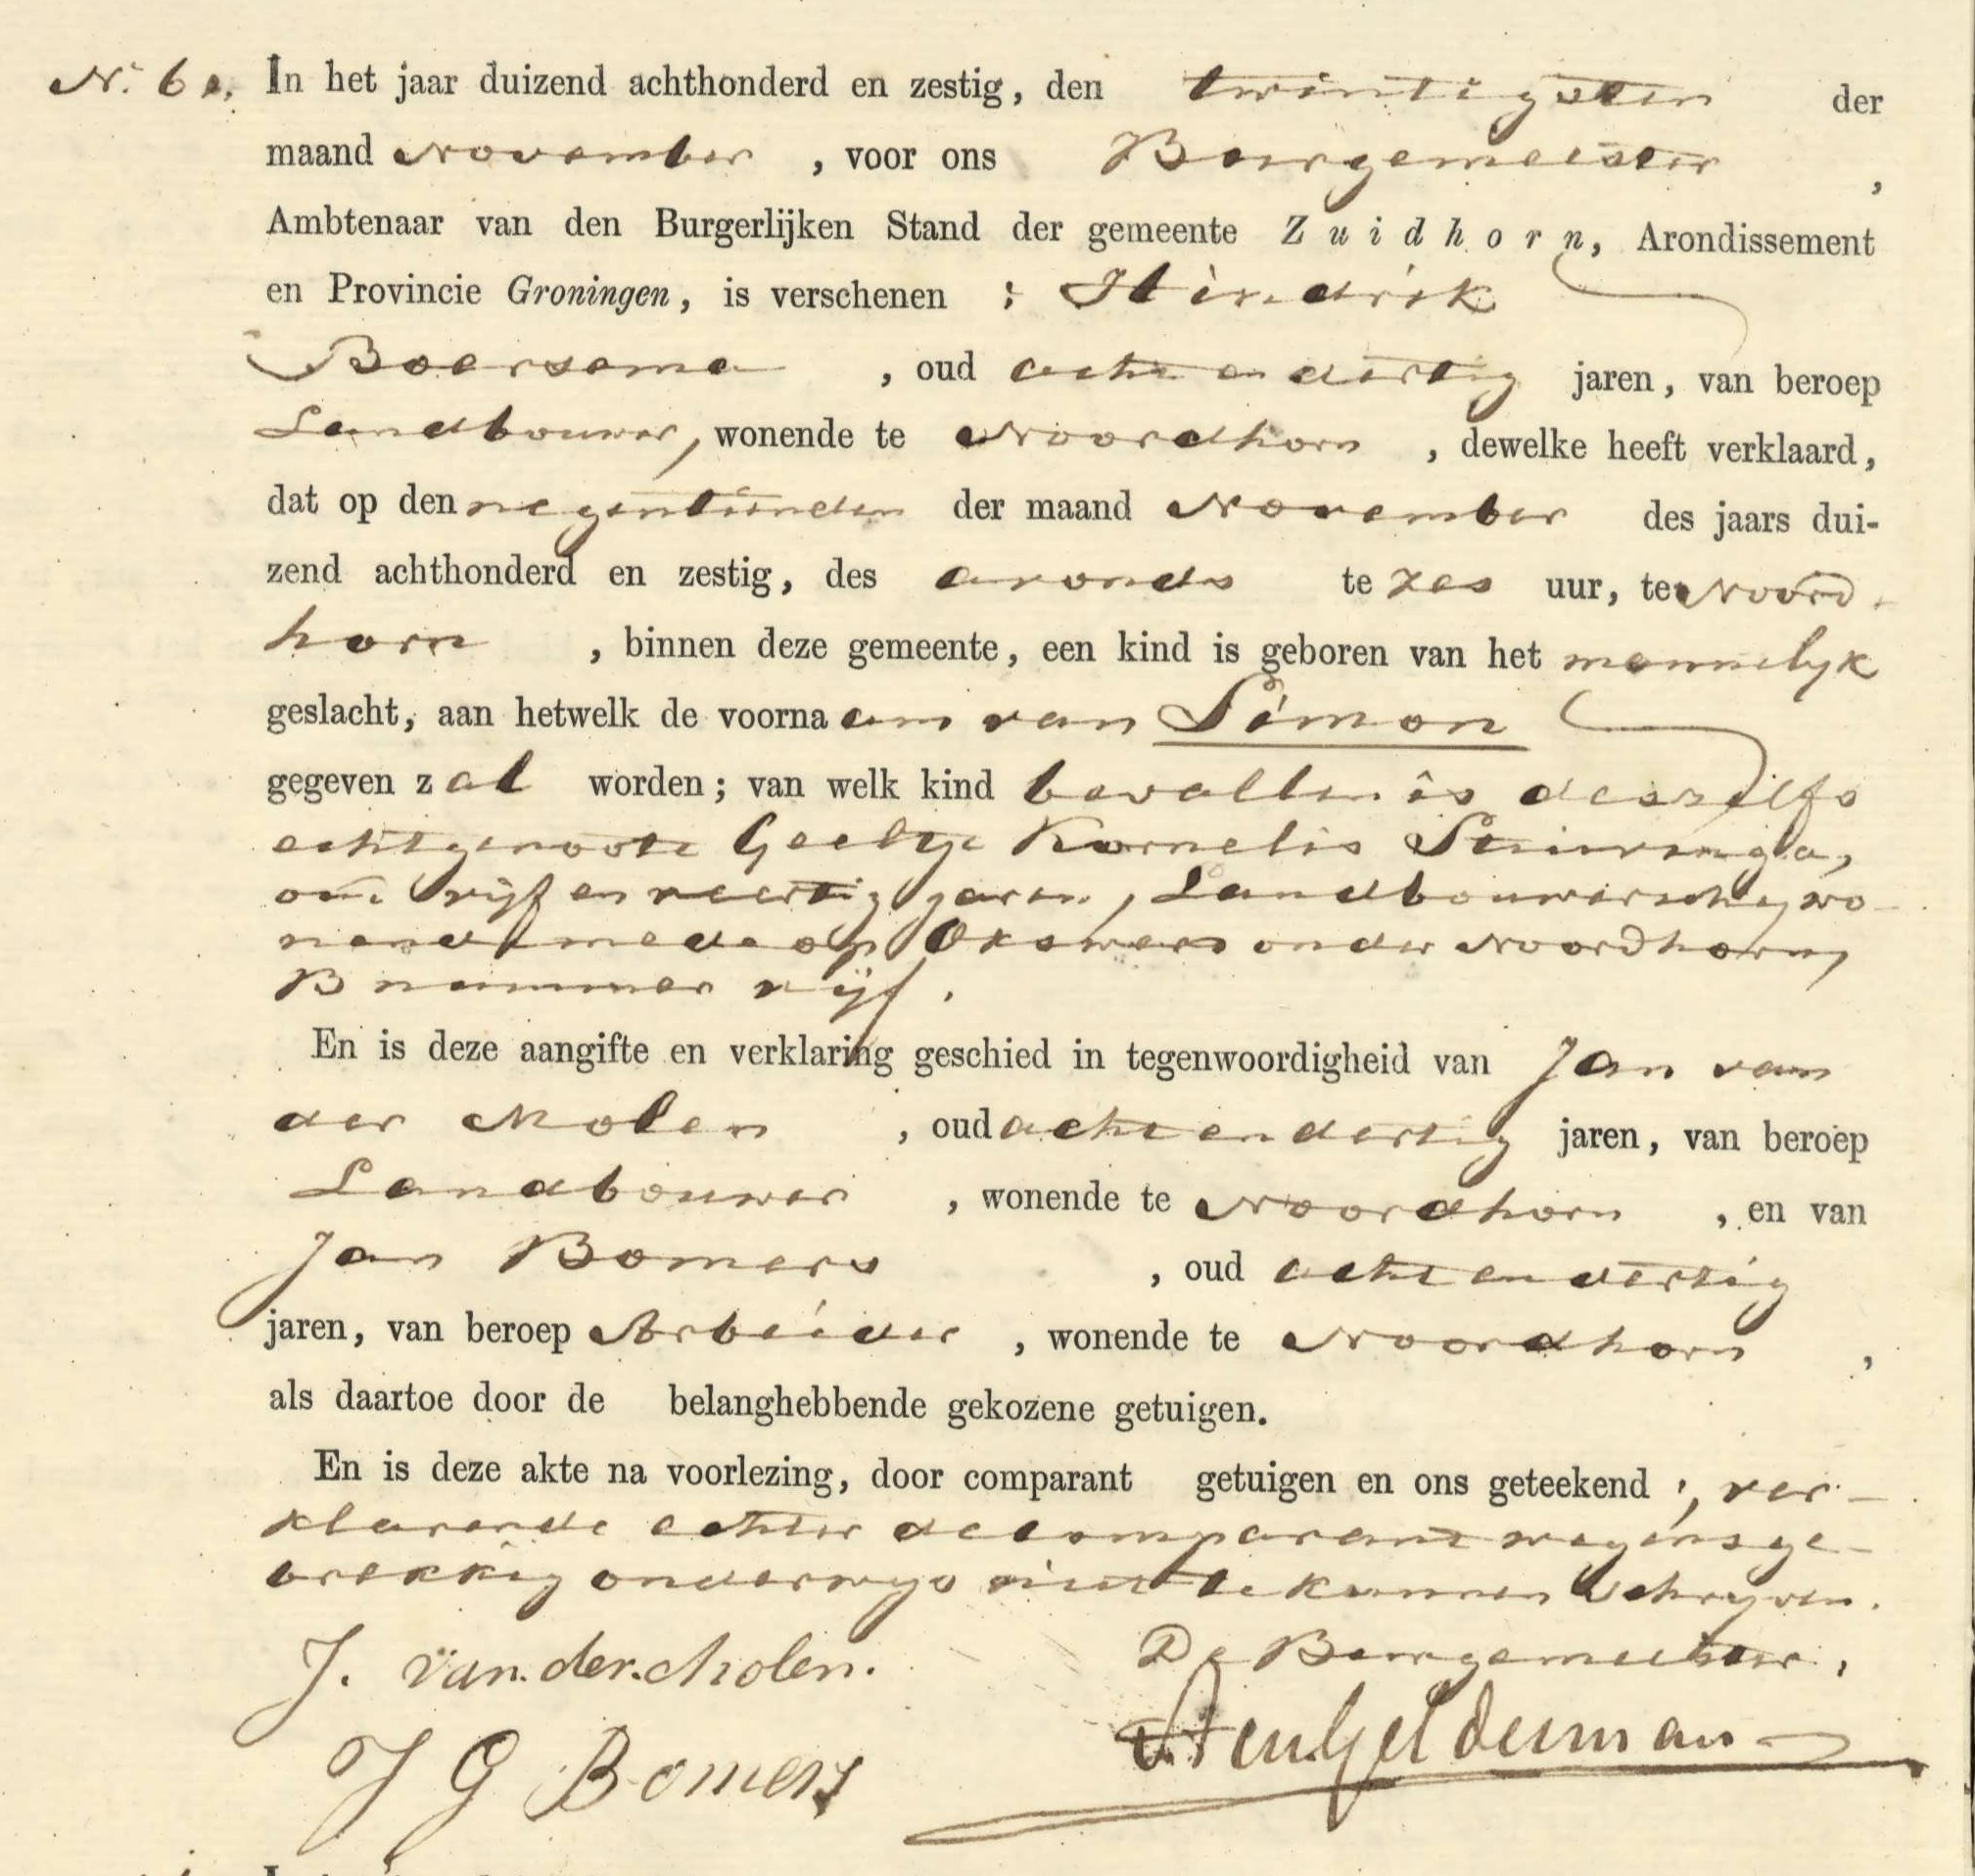 In het jaar duizend achthonderd en zestig, den twintigsten der
maand November , voor ons Burgemeester ,
Ambtenaar van den Burgerlijken Stand der gemeente Zuidhorn, Arondissement
en Provincie Groningen, is verschenen : Hindrik
Boersema , oud acht en dertig jaren, van beroep
Landbouwer, wonende te Noordhorn , dewelke heeft verklaard,
dat op den negentienden der maand November des jaars dui-
zend achthonderd en zestig, des avonds te zes uur, te Noord-
horn , binnen deze gemeente, een kind is geboren van het mannelyk
geslacht, aan hetwelk de voornaam van Simon
gegeven zal worden; van welk kind bevallen is deszelfs
echtgenoote Geeltje Kornelis Stuivinga,
oud vijf en veertig jaren, Landbouwersche, wo-
nende mede op Okswerd onder Noordhorn,
B nummer vijf.
En is deze aangifte en verklaring geschied in tegenwoordigheid van Jan van
der Molen , oud acht en dertig jaren, van beroep
Landbouwer , wonende te Noordhorn , en van
Jan Bomers , oud acht en dertig
jaren, van beroep Arbeider , wonende te Noordhorn ,
als daartoe door de belanghebbende gekozene getuigen.
En is deze akte na voorlezing, door comparant getuigen en ons geteekend ;, ver-
klarende echter de comparant wegens ge-
brekkig onderwys niet te kunnen schryven.
J. van der Molen. De Burgemeester,
J G Bomers